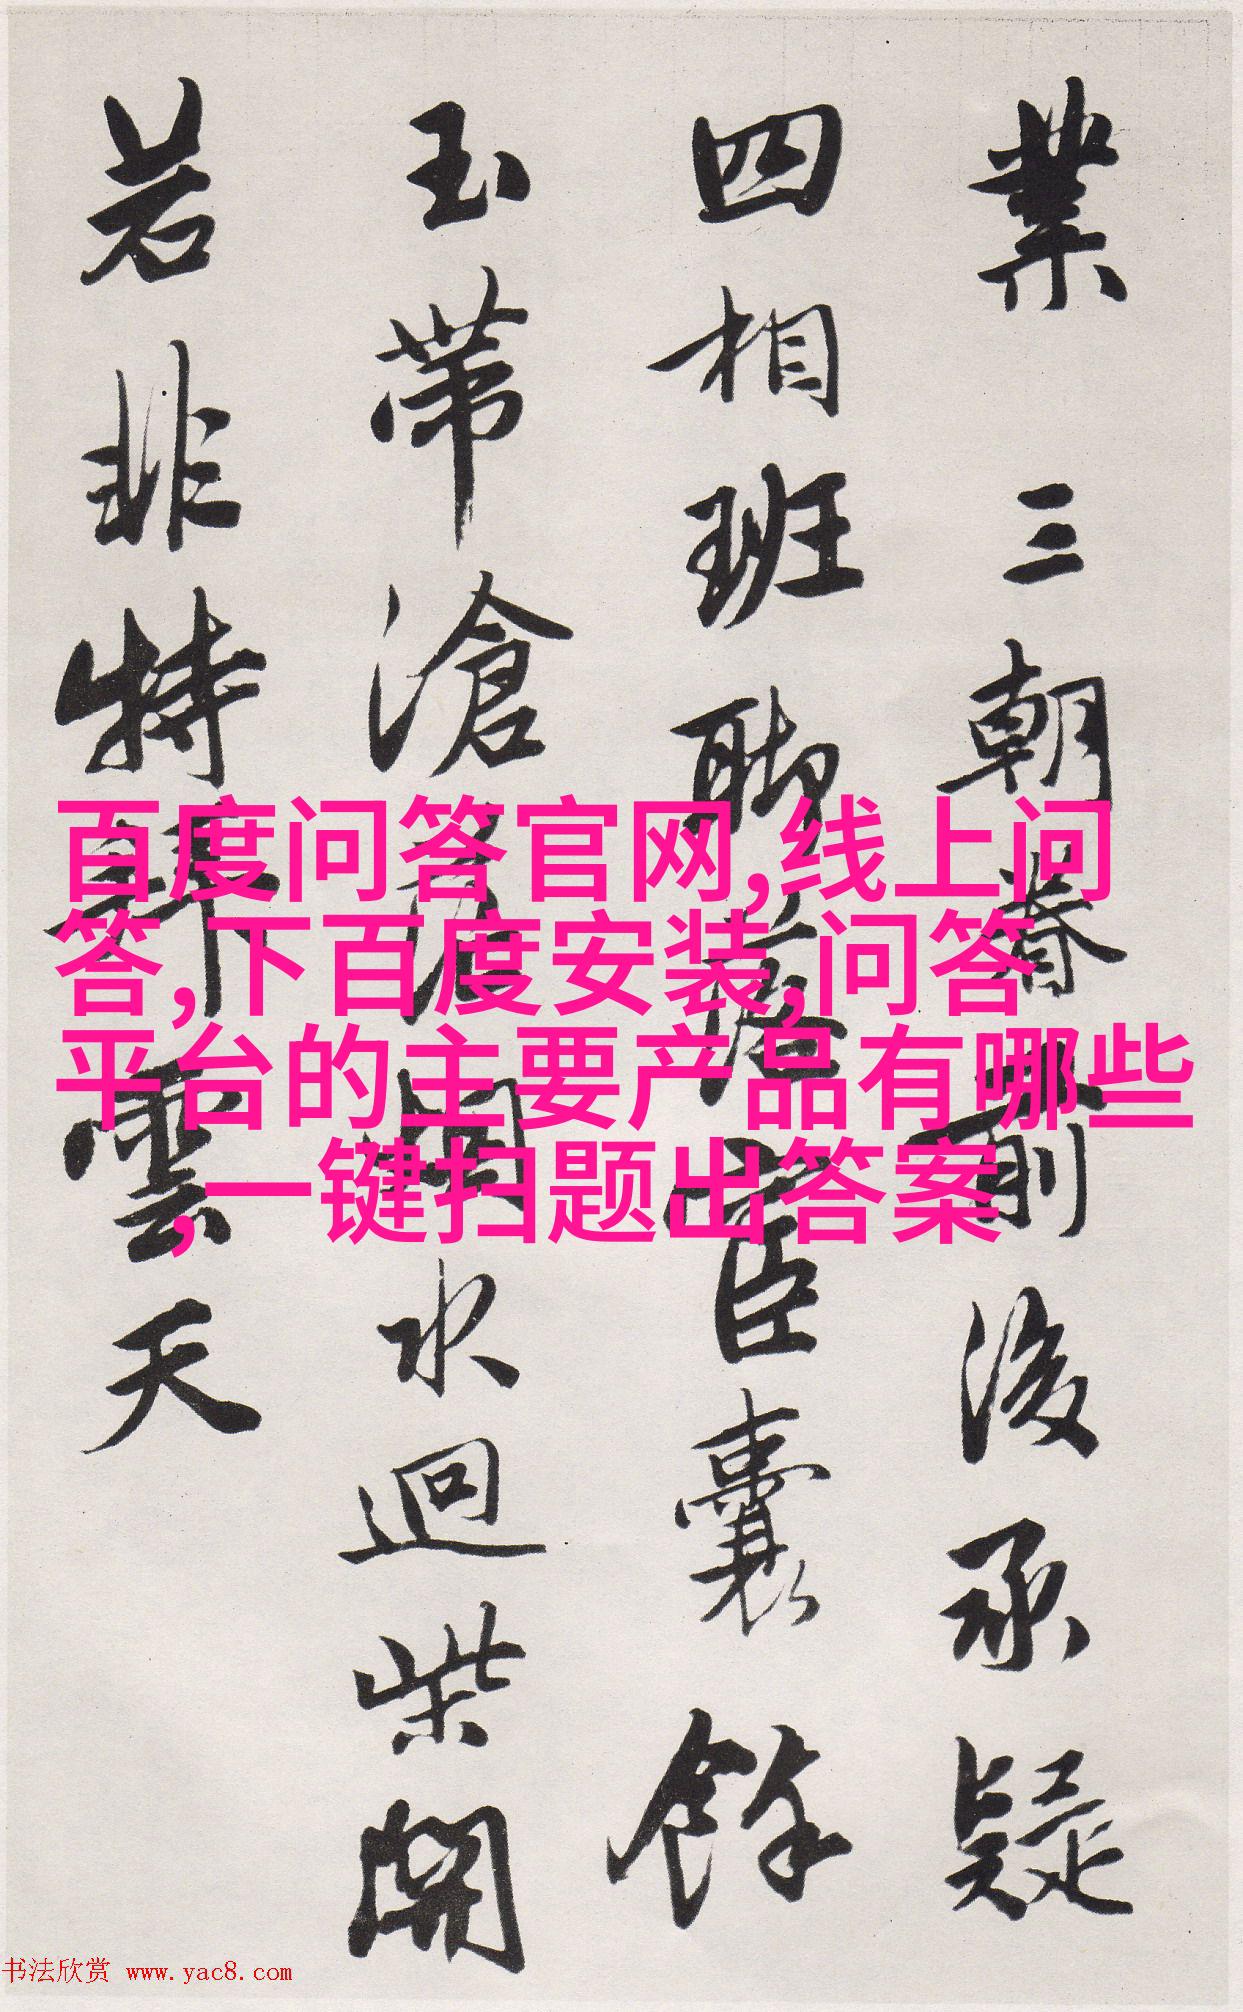 業三朝前後承疑
四相班聯臣囊餘
玉帶滄水迴柴開
若非特雲天
百度问答官网,线上问
答,下百度安装,问答
平台的主要产品有哪些
，一键扫题出答案
书法欣赏 www.yac8.com